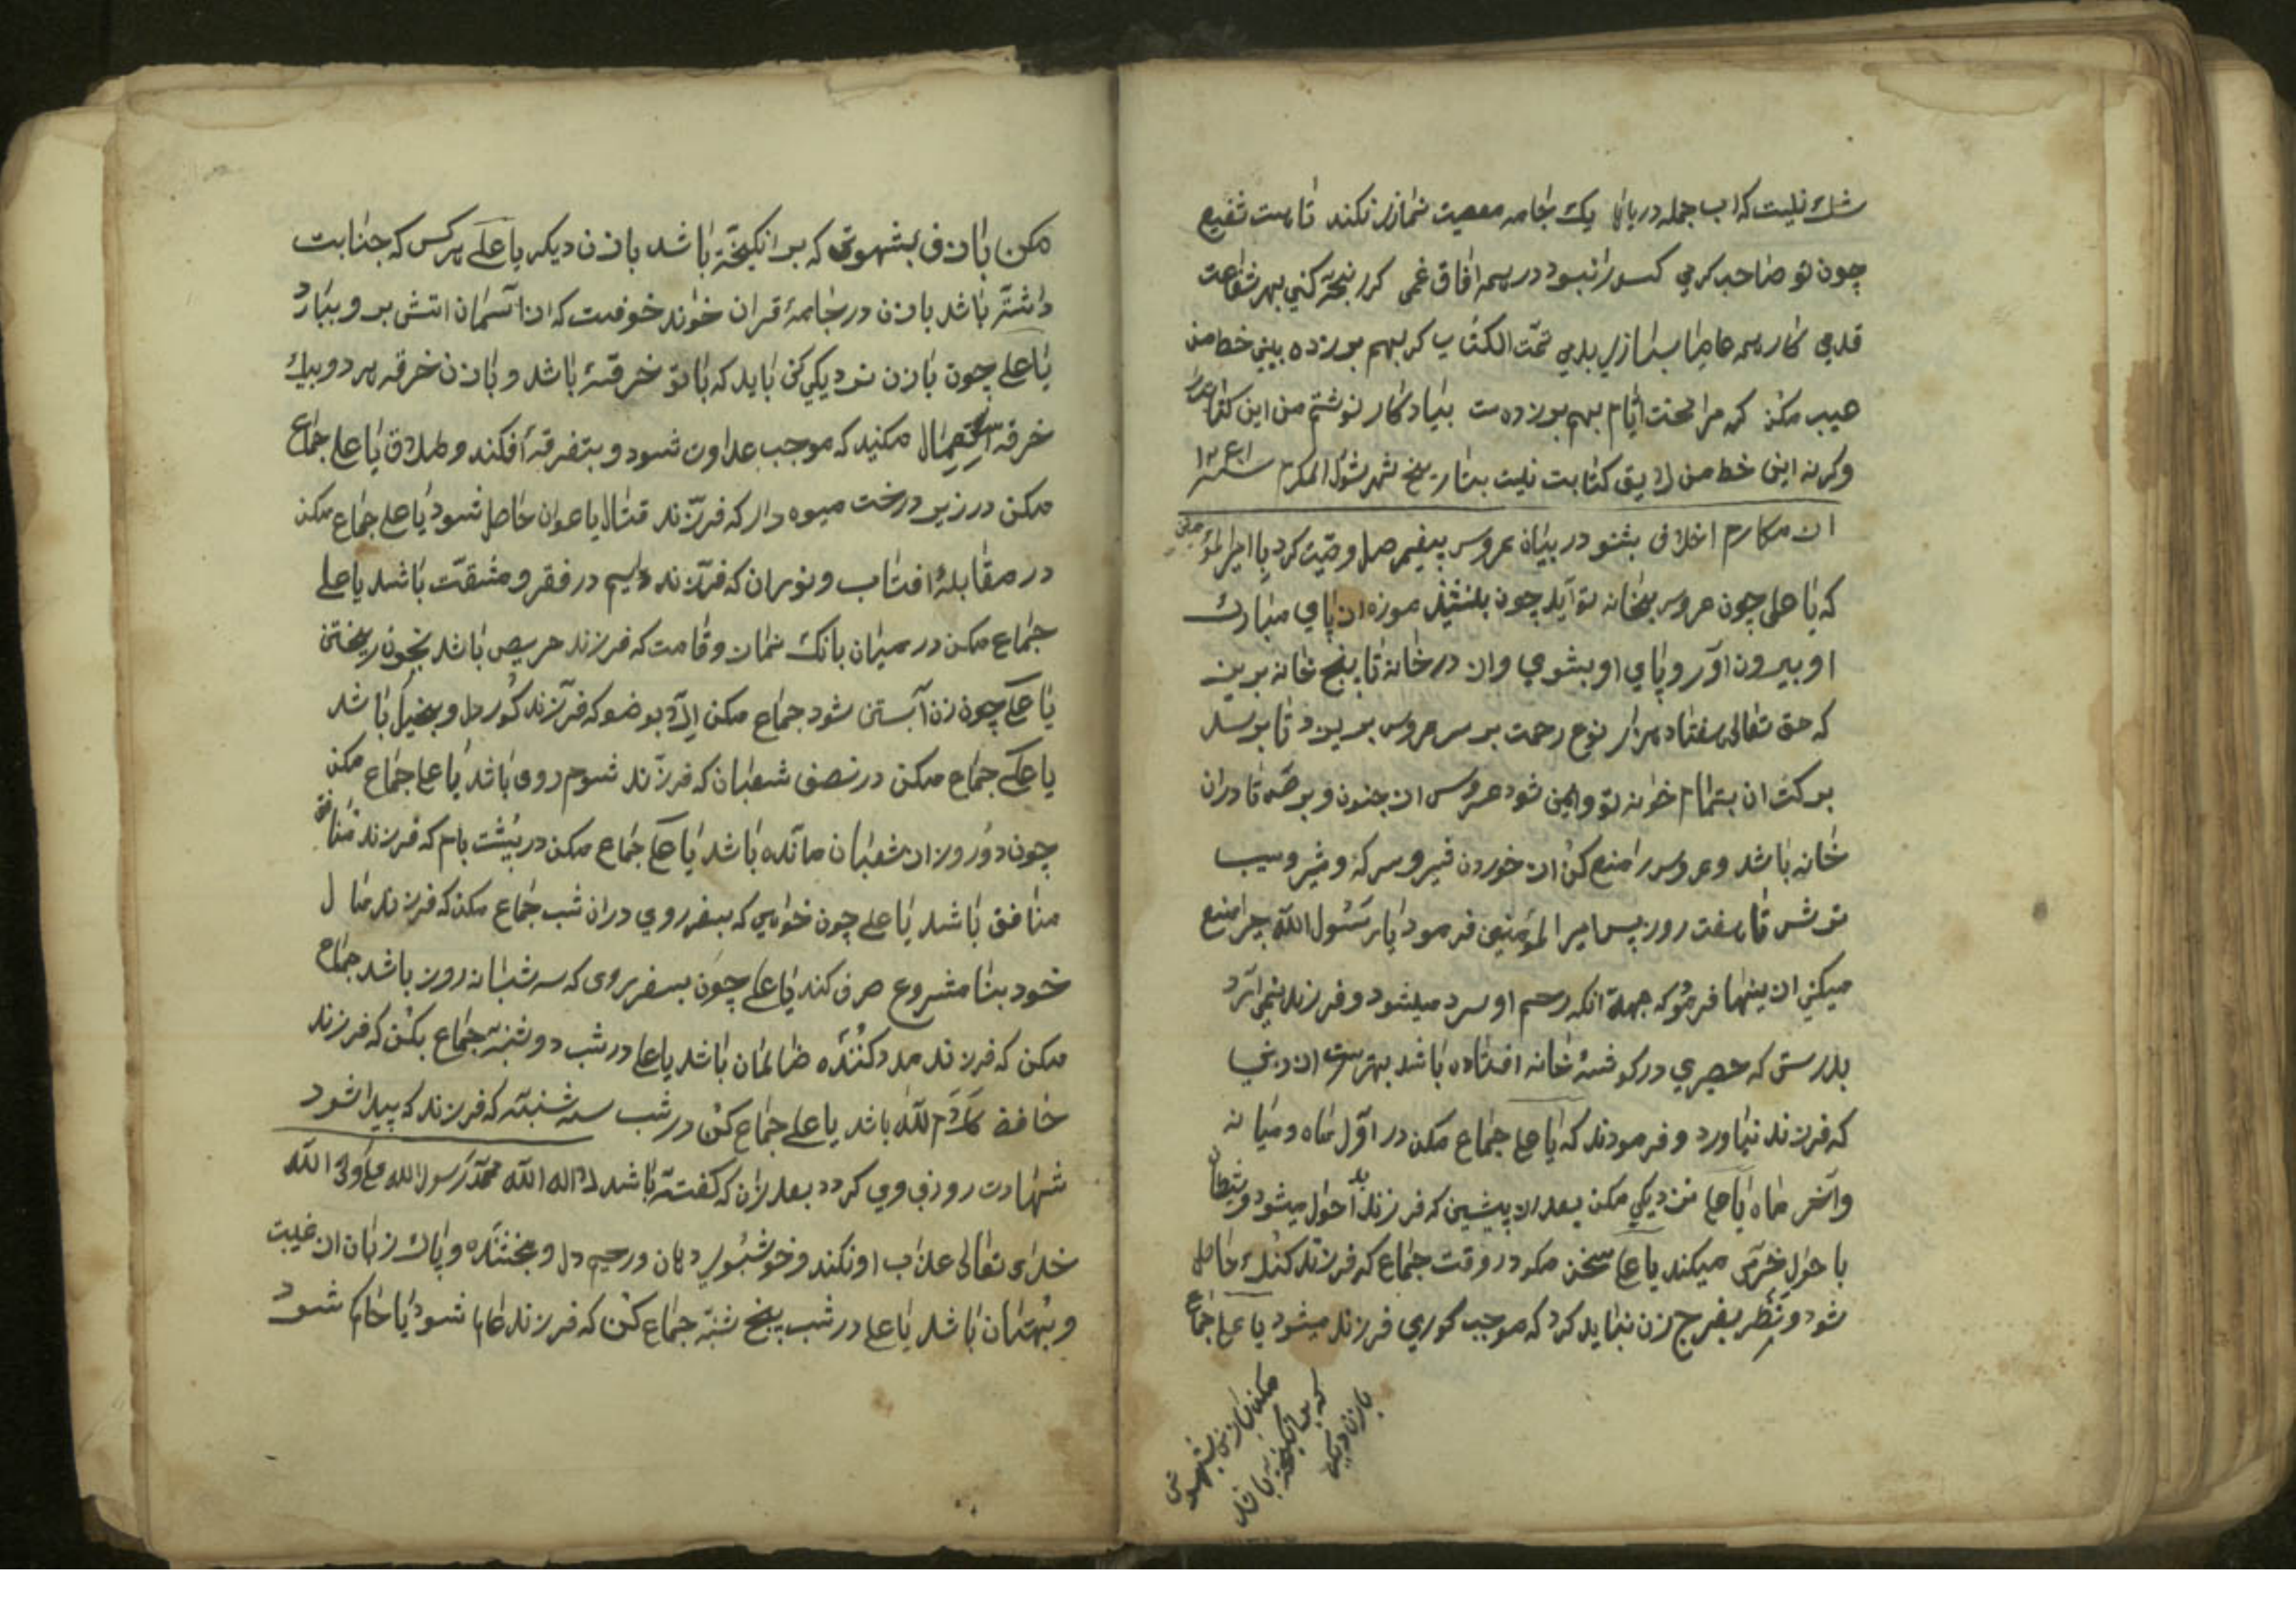 شك نیست که اب جمله دریای یك جامه معصیت نمازی نکند تا هست شفیع
چون تو صاحب کرمی کس را نبود در همه افاق غمی کر رنجه کنی بهر شفاعت
قدمی کار همه عاصیا بسازی بدمی تمّت الکتاب کر بهم بر زده بینی خط من
عیب مکن که مرا محنت ایّام بهم بر زده ست بیادکار نوشتم من این کتاب
وکرنه این خط من لایق کتابت نیست بتاریخ شهر شوّال المکرم سنه
از مکارم اخلاق بشنو در بیان عروس پیغمبر صلم وصیّت کرد با امیر المؤمنین
که یا علی چون عروس بخانه تو آید چون بنشیند موزه از پای مبارك
او بیرون اور و پای او بشوی و از در خانه تا پنج خانه بریز
که حق تعالی هفتاد هزار نوع رحمت بر سر عروس بریزد تا برسد
برکت ان بتمام خانه تو و ایمن شود عروس از جنون و برص تا دران
خانه باشد و عروس را منع کن از خوردن خیر و سرکه و شیر و سیب
ترش تا هفت روز پس امیر المؤمنین فرمود یا رسول اللّه چرا منع
میکنی از ینها فرمود که جهة انکه رحم او سرد میشود و فرزند نمی آرد
بدرستی که حصیری در کوشهٔ خانه افتاده باشد بهتر ست از زنی
که فرزند نیاورد و فرمودند که یا علی جماع مکن در اوّل ماه و میانه
و آخر ماه یا علی نزدیکی مکن بعد از پیشین که فرزند احول میشود و شیطان
با حول خرّم میکند یا علی سخن مکو در وقت جماع که فرزند کنك حاصل
شود و نظر بفرج زن نباید کرد که موجب کوری فرزند میشود یا علی جماع
مکن با زن بشهوتی
که بر انکیخته باشد
با زن دیکر
مکن با زن بشهوتی که بر انکیخته باشد با زن دیکر یا علی هر کس که جنابت
داشته باشد با زن در جامهٔ قران خواند خوفست که از آسمان اتش بر و ببارد
یا علی چون با زن نزدیکی کنی باید که با تو خرقهٔ باشد و با زن خرقه هر دو بیك
خرقه استعمال مکنید که موجب عداوت شود و بتفرقه افکند و طلاق یا علی جماع
مکن در زیر درخت میوه دار که فرزند قتال یا عوان حاصل شود یا علی جماع مکن
در مقابلهٔ افتاب و نوران که فرزند دایم در فقر و مشقّت باشد یا علی
جماع مکن در میان بانك نماز و قامت که فرزند حریص باشد بخون ریختن
یا علی چون زن آبستن شود جماع مکن الّا بوضو که فرزند کور دل و بخیل باشد
یا علی جماع مکن در نصف شعبان که فرزند شوم روی باشد یا علی جماع مکن
چون دو روز از شعبان مانده باشد یا علی جماع مکن در پشت بام که فرزند منافق
منافق باشد یا علی چون خواهی که بسفر روی دران شب جماع مکن که فرزند مال
خود بنا مشروع صرف کند یا علی چون بسفر روی که سه شبانه روز باشد جماع
مکن که فرزند مدد کننده ظالمان باشد یا علی در شب دو شنبه جماع بکن که فرزند
حافظ کلام اللّه باشد یا علی جماع کن در شب سه شنبه که فرزند که پیدا شود
شهادت روزی وی کردد بعد ازان که کفته باشد لا اله الا اللّه محمّد رسول اللّه علی ولی اللّه
خدای تعالی عذاب او نکند و خوشبوی دهان و رحیم دل و بخشنده و پاك زبان از غیبت
و بهتان باشد یا علی در شب پنج شنبه جماع کن که فرزند عالم شود یا حاکم شود